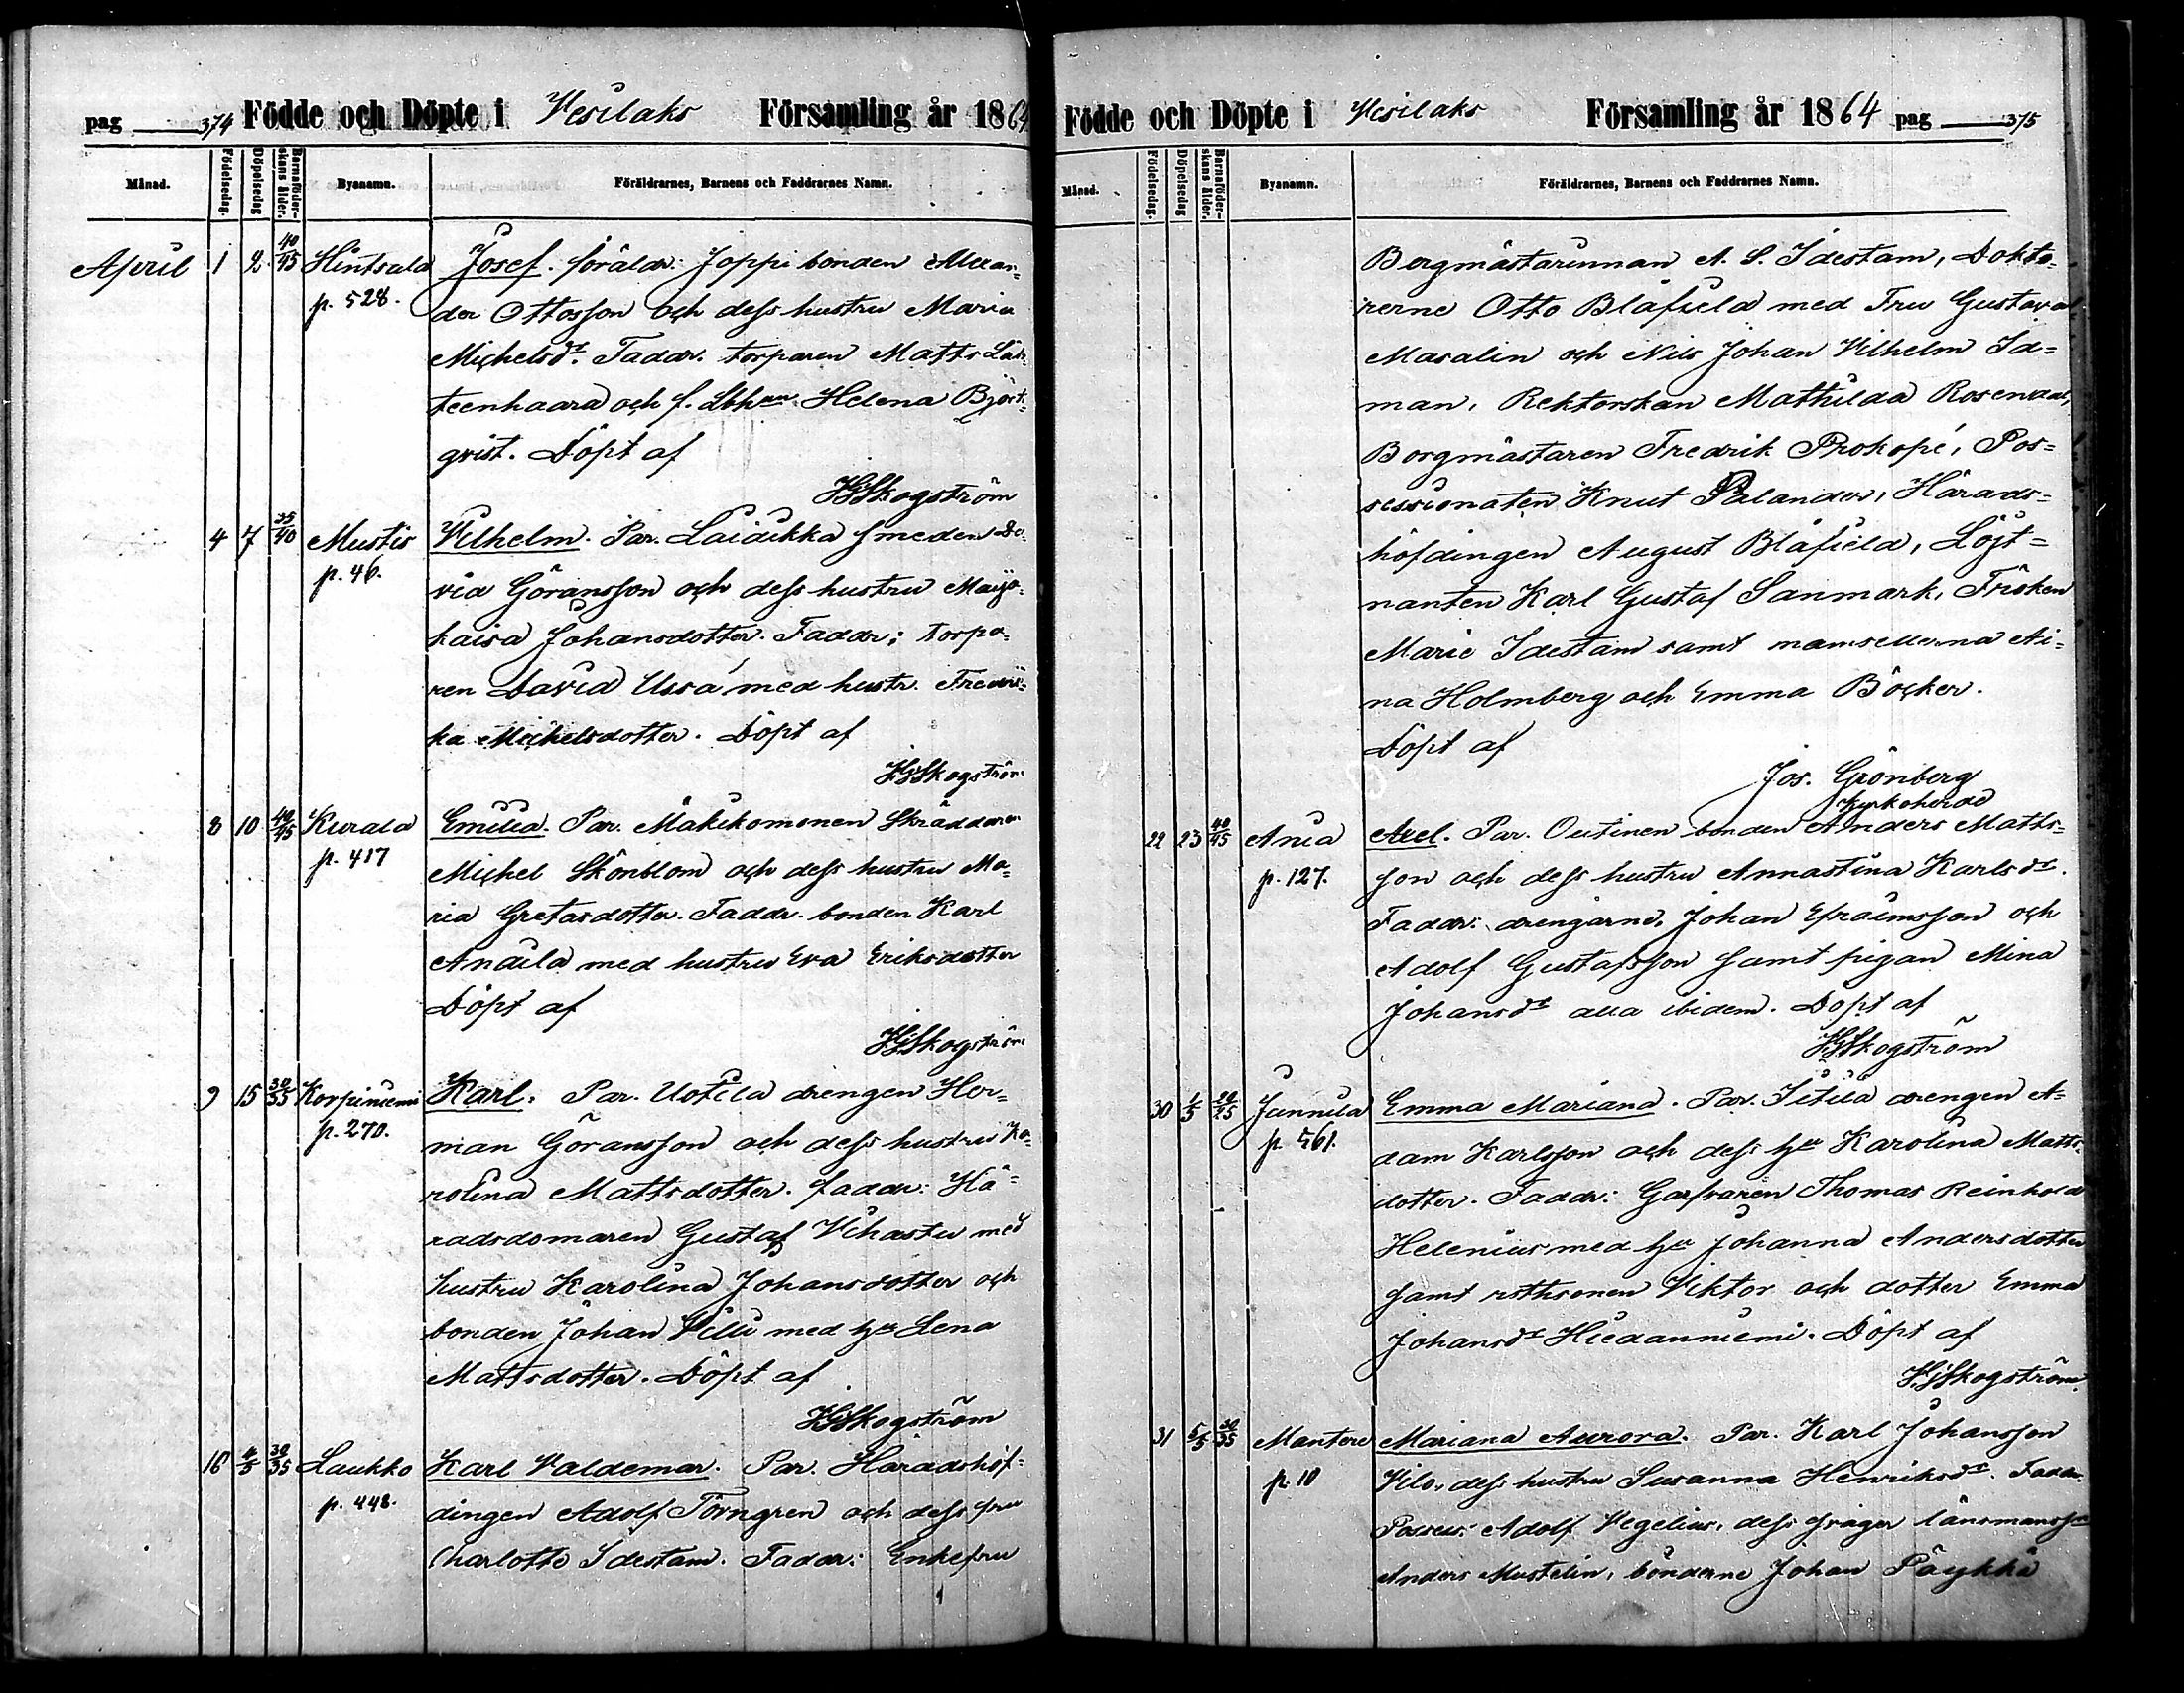 pag 374 Födde och Döpte i Vesilaks Församling år 1864
Månad. Födelsedag. Döpelsedag Barnaföderskans ålder. Byanamn. Föräldrarnes, Barnens och Faddrarnes Namn.
April 1 2 40/45 Hintsala Josef. föräldr: Joppi bonden Alexan-
p. 528. der Ottosson och dess hustru Maria
Michelsdr. Faddr. torparen Matts Läh-
teenhaara och f. Helena Björk-
qvist. Döpt af
HGSkogström
4 7 35/40 Mustis Vilhelm. Par. Laidikka smeden Da-
p. 46. vid Göransson och dess hustru Maja-
kaisa Johansdotter. Faddr: torpa-
ren David Ussa med hustr. Fredri-
ka Michelsdotter. Döpt af
HGSkogström
8 10 40/45 Kurala Emilia. Par. Mäkikomonen Skräddaren
p. 417 Michel Skönblom och dess hustru Ma-
ria Gretasdotter. Faddr. bonden Karl
Andila med hustru Eva Eriksdotter
Döpt af
HGSkogström
9 15 30/35 Korpiniemi Karl. Par. Uotila drengen Her-
p. 270. man Göransson och dess hustru Ka-
rolina Mattsdotter. faddr: Hä-
radsdomaren Gustaf Vihastu med
hustru Karolina Johansdotter och
bonden Johan Villi med hu Lena
Mattsdotter. Döpt af
HGSkogström
16 4/5 30/35 Laukko Karl Valdemar. Par. Häradshöf-
p. 448. dingen Adolf Törngren och dess fru
Charlotte Idestam. Faddr: Enkefru
Födde och Döpte i Vesilaks Församling år 1864 pag 375
Månad. Födelsedag. Döpelsedag Barnaföderskans ålder. Byanamn. Föräldrarnes, Barnens och Faddrarnes Namn.
Bergmästarinnan A. S. Idestam, Dokto-
rerne Otto Blåfield med Fru Gustava
Masalin och Nils Johan Vilhelm Id-
man, Rektorskan Mathilda Rosendal,
Borgmästaren Fredrik Prokopé, Pos-
sessionaten Knut Palander, Härads-
höfdingen August Blåfield, Löjt-
nanten Karl Gustaf Sanmark, Fröken
Marie Idestam samt mamsellerna Ai-
na Holmberg och Emma Böcker.
Döpt af
Jos. Grönberg
Kyrkoherde
22 23 40/45 Ania Axel. Par. Outinen bonden Anders Matts-
p. 127. son och dess hustru Annastina Karlsdr.
Faddr: drengarne, Johan Efraimsson och
Adolf Gustafsson samt pigan Mina
Johansdr alla ibidem. Döpt af
HGSkogström
30 1/5 20/25 Junnila Emma Mariana. Par. Iitiä drengen A-
p. 561. dam Karlsson och dess hu Karolina Matts-
dotter. Faddr: Garfvaren Thomas Reinhold
Helenius med hu Johanna Andersdotter
samt Viktor och dotter Emma
Johansdr Hiedanniemi. Döpt af
HGSkogström
31 5/5 30/35 Mantere Mariana Aurora. Par. Karl Johansson
p. 10 Vilo, dess hustru Susanna Henriksdr. Faddr.
Adolf Vegelius, dess svåger
Anders Mustelin, bönderne Johan Päykkä